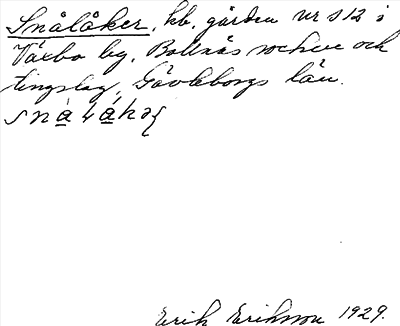 Snålåker, hb. gården nr S12 i
Växbo by, Bollnäs socken och
tingslag, Gävleborgs län.
Erik Eriksson 1929.